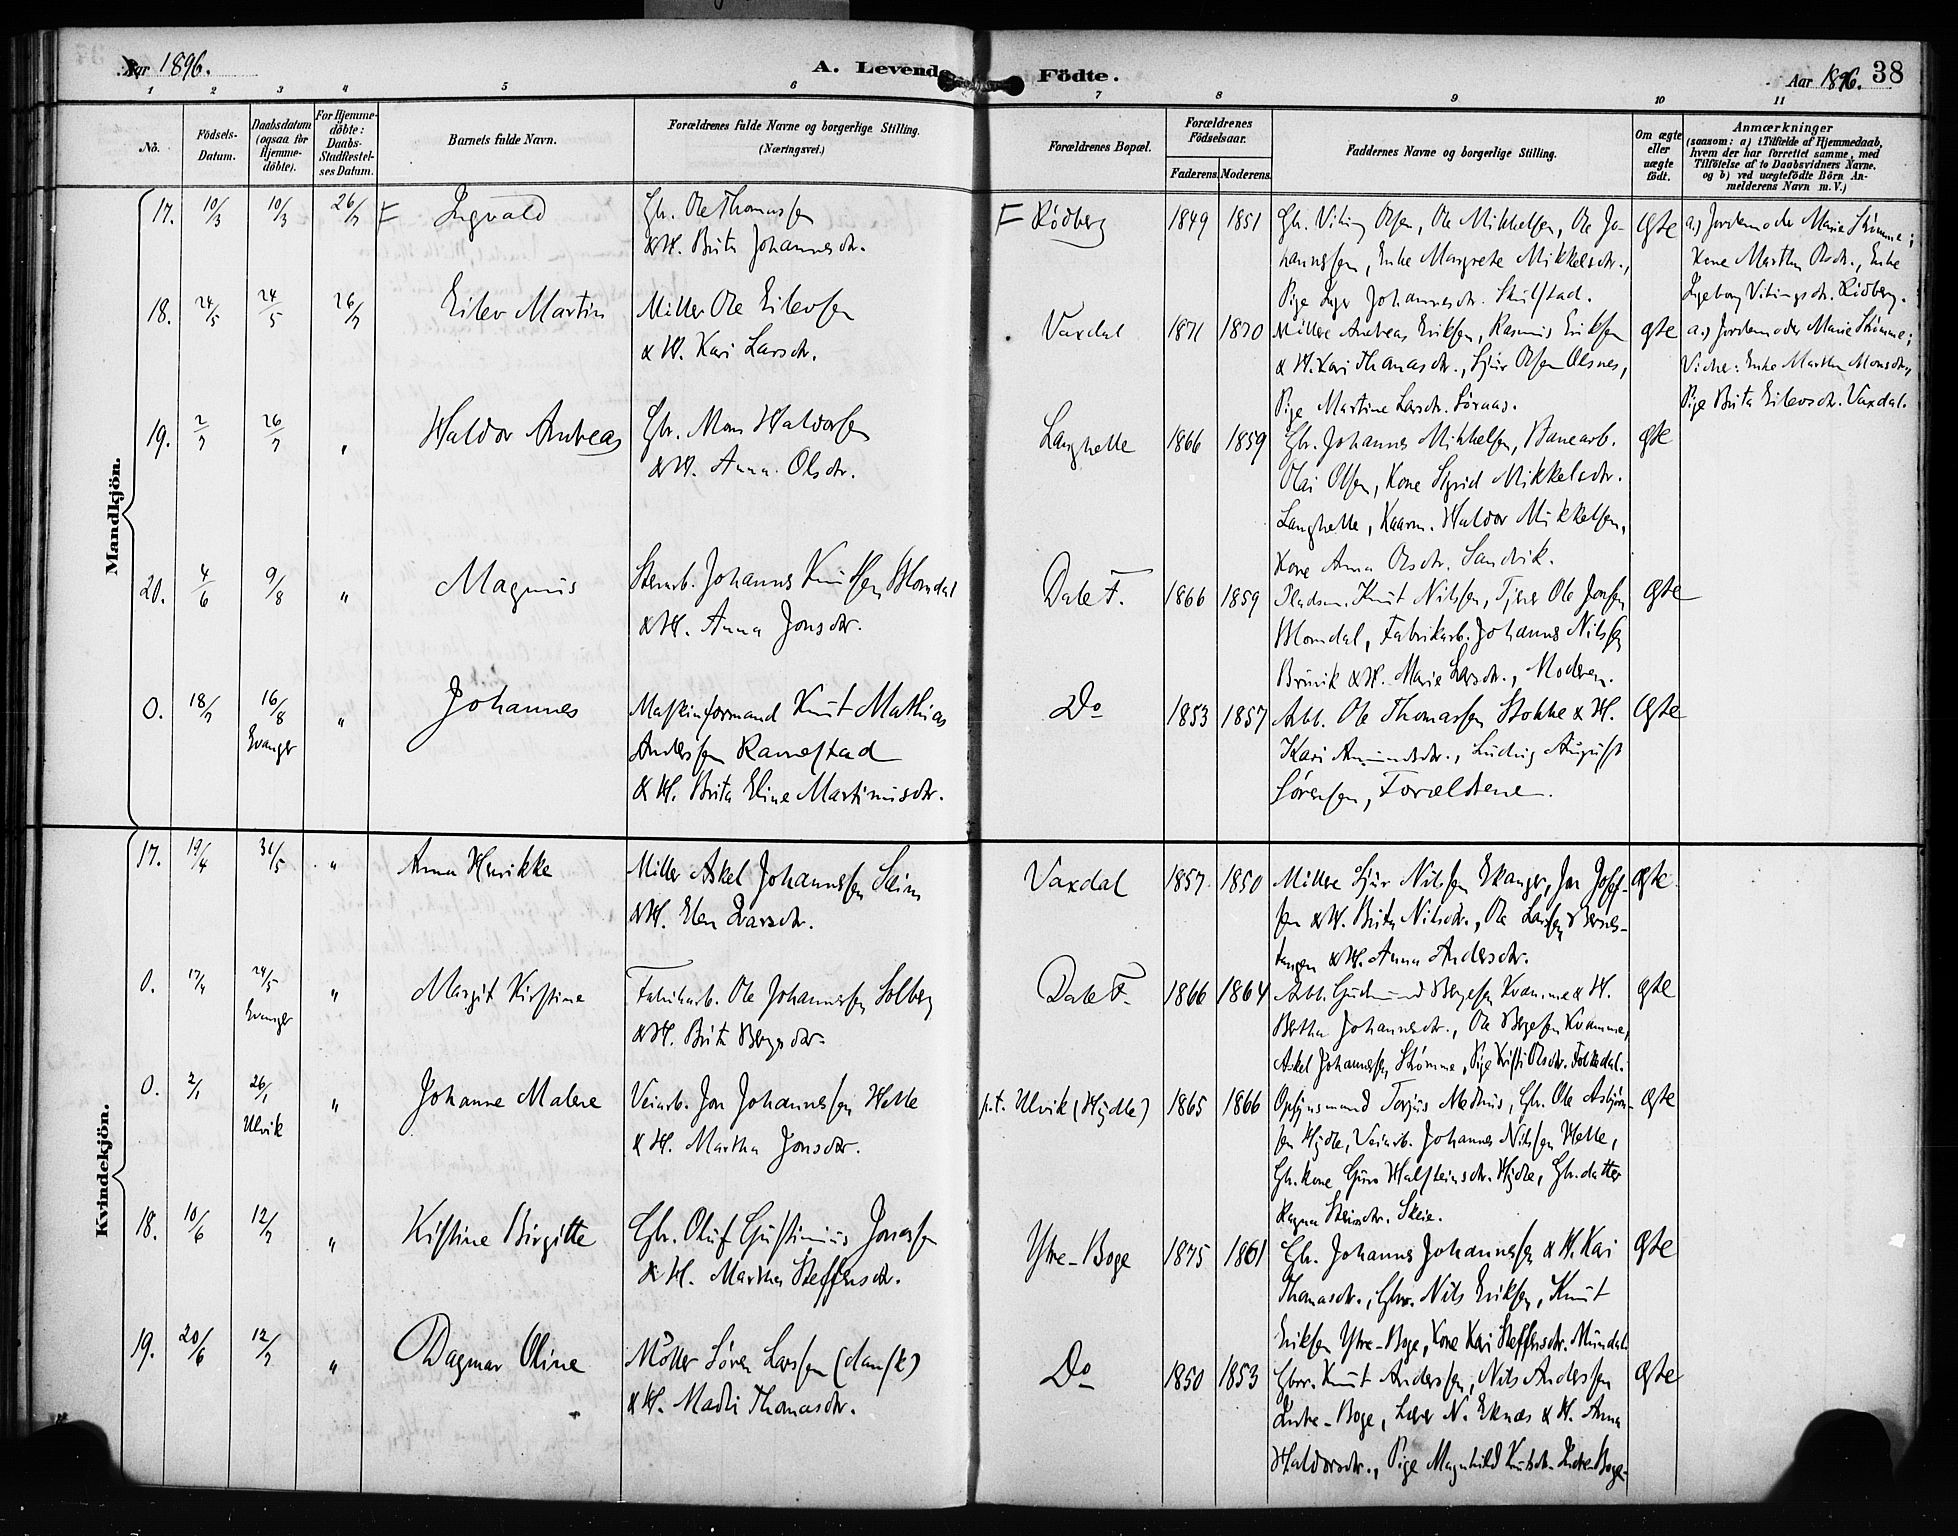 Aar 1896.
A. Levende
Fødte.
Aar 1896.
38
1 2 3 4 5 6 7 8 9 10 11
No.
Födsels-
Datum.
Daabsdatum
(ogsaa for
Hjemme-
döbte).
For Hjemme-
döbte:
Daabs-
Stadfestel-
ses Datum.
Barnets fulde Navn.
Forældrenes fulde Navne og borgerlige Stilling.
(Næringsvei.)
Forældrenes Bopæl.
Forældrenes
Födselsaar.
Faderens. Moderens.
Faddernes Navne og borgerlige Stilling.
Om ægte
eller
uægte
födt.
Anmærkninger
(saasom: a) i Tilfælde af Hjemmedaab,
hvem der har forrettet samme, med
Tilföielse af to Daabsvidners Navne,
og b) ved uægtefödte Börn An-
melderens Navn m. V.)
Mandkjön.
17. 10/3 10/3 26/7 Ingvald
Gbr. Ole Thomassen
& H. Brita Johannesdtr.
Rødberg 1849 1851
Gbr. Viking Olsen, Ole Mikkelsen, Ole Jo-
hannessen, Enke Margrete Mikkelsdtr.,
Pige Inger Johannesdtr. Skulstad.
ægte
a.) Jordemoder Marie Stømme;
Kone Martha Olsdtr., Enke
Ingeborg Vikingsdtr. Rødberg.
18. 24/5 24/5 26/7 Eilev Martin
Møller Ole Eilevsen
& H. Kari Larsdtr.
Vaxdal 1871 1870
Møllere Andreas Eriksen, Rasmus Eriksen
& H. Kari Thomasdtr., Sjur Olsen Olsnes,
Pige Martine Larsdtr. Sørnaas.
ægte
a.) Jordemoder Marie Stømme;
Vidne: Enke Martha Monsdtr,
Pige Brita Eilevsdtr. Vaxdal.
19. 2/7 26/7 " Haldor Andreas
Gbr. Mons Haldorsen
& H. Anna Olsdtr.
Langhelle 1866 1859
Gbr. Johannes Mikkelsen, Banearb.
Olai Olsen, Kone Sigrid Mikkelsdtr.
Langhelle, Kaarm. Haldor Mikkelsen,
Kone Anna Olsdtr. Sandvik.
ægte
20. 4/6 9/8 " Magnus
Stenarb. Johannes Knutsen Blomdal
& H. Anna Jonsdtr.
Dale F. 1866 1859
Pladsm. Knut Nilssen, Tjener Ole Jonsen
Blomdal, Fabrikarb. Johannes Nilssen
Bruvik & H. Marie Larsdtr., Moderen.
ægte
0. 18/7 16/8 " Johannes
Evanger
Maskinformand Knut Mathias
Anderssen Ramestad
& H. Brita Eline Martinusdtr.
Do 1853 1857
Arb. Ole Thomassen Stokke & H.
Kari Amundsdtr., Ludvig August
Sørensen, Forældrene.
ægte
Kvindekjön.
17. 19/4 31/5 " Anna Henrikke
Møller Askel Johannessen Skim
& H. Elen Ivarsdtr.
Vaxdal 1857 1850
Møllere Sjur Nilssen Ekanger, Jon Josef-
sen & H. Brita Nilsdtr., Ole Larsen Bernes-
tangen & H. Anna Andersdtr.
ægte
0. 17/4 24/5 " Margit Kirstine
Evanger
Fabrikarb. Ole Johannessen Solberg
& H. Brita Bergesdtr.
Dale F. 1866 1864
Arb. Gudmund Bergesen Kvamme & H.
Bertha Johannesdtr., Ole Bergesen Kvamme,
Askel Johannessen Stømme, Pige Kristi Olsdtr. Folkedal.
ægte
0. 2/1 26/1 " Johanne Malene
Ulvik
Veiarb. Jon Johannessen Helle
& H. Martha Jonsdtr.
p.t. Ulvik (Hydle) 1865 1866
Opsynsmand Torjus Medhus, Gbr. Ole Asbjørn-
sen Hydle, Veiarb. Johannes Nilssen Helle,
Gbr.kone Guro Halsteinsdtr. Hydle, Gbr.datter
Ragna Steinsdtr. Skeie.
ægte
18. 10/6 12/7 " Kistine Birgitte
Gbr. Oluf Gustinius Jonassen
& H. Martha Steffensdtr.
Ytre-Boge 1875 1861
Gbr. Johannes Johannessen & H. Kari
Thomasdtr., Gbr. Nils Eriksen, Knut
Eriksen Ytre-Boge, Kone Kari Steffensdtr. Mundal.
ægte
19. 20/6 12/7 " Dagmar Oline
Møller Søren Larssen (dansk)
& H. Madli Thomasdtr.
Do 1850 1853
Gbrr. Knut Anderssen, Nils Anderssen
Indre-Boge, Lærer N. Eknæs & H. Anna
Haldorsdtr., Pige Magnhild Knutsdtr. Indre Boge.
ægte